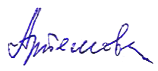 Артемова